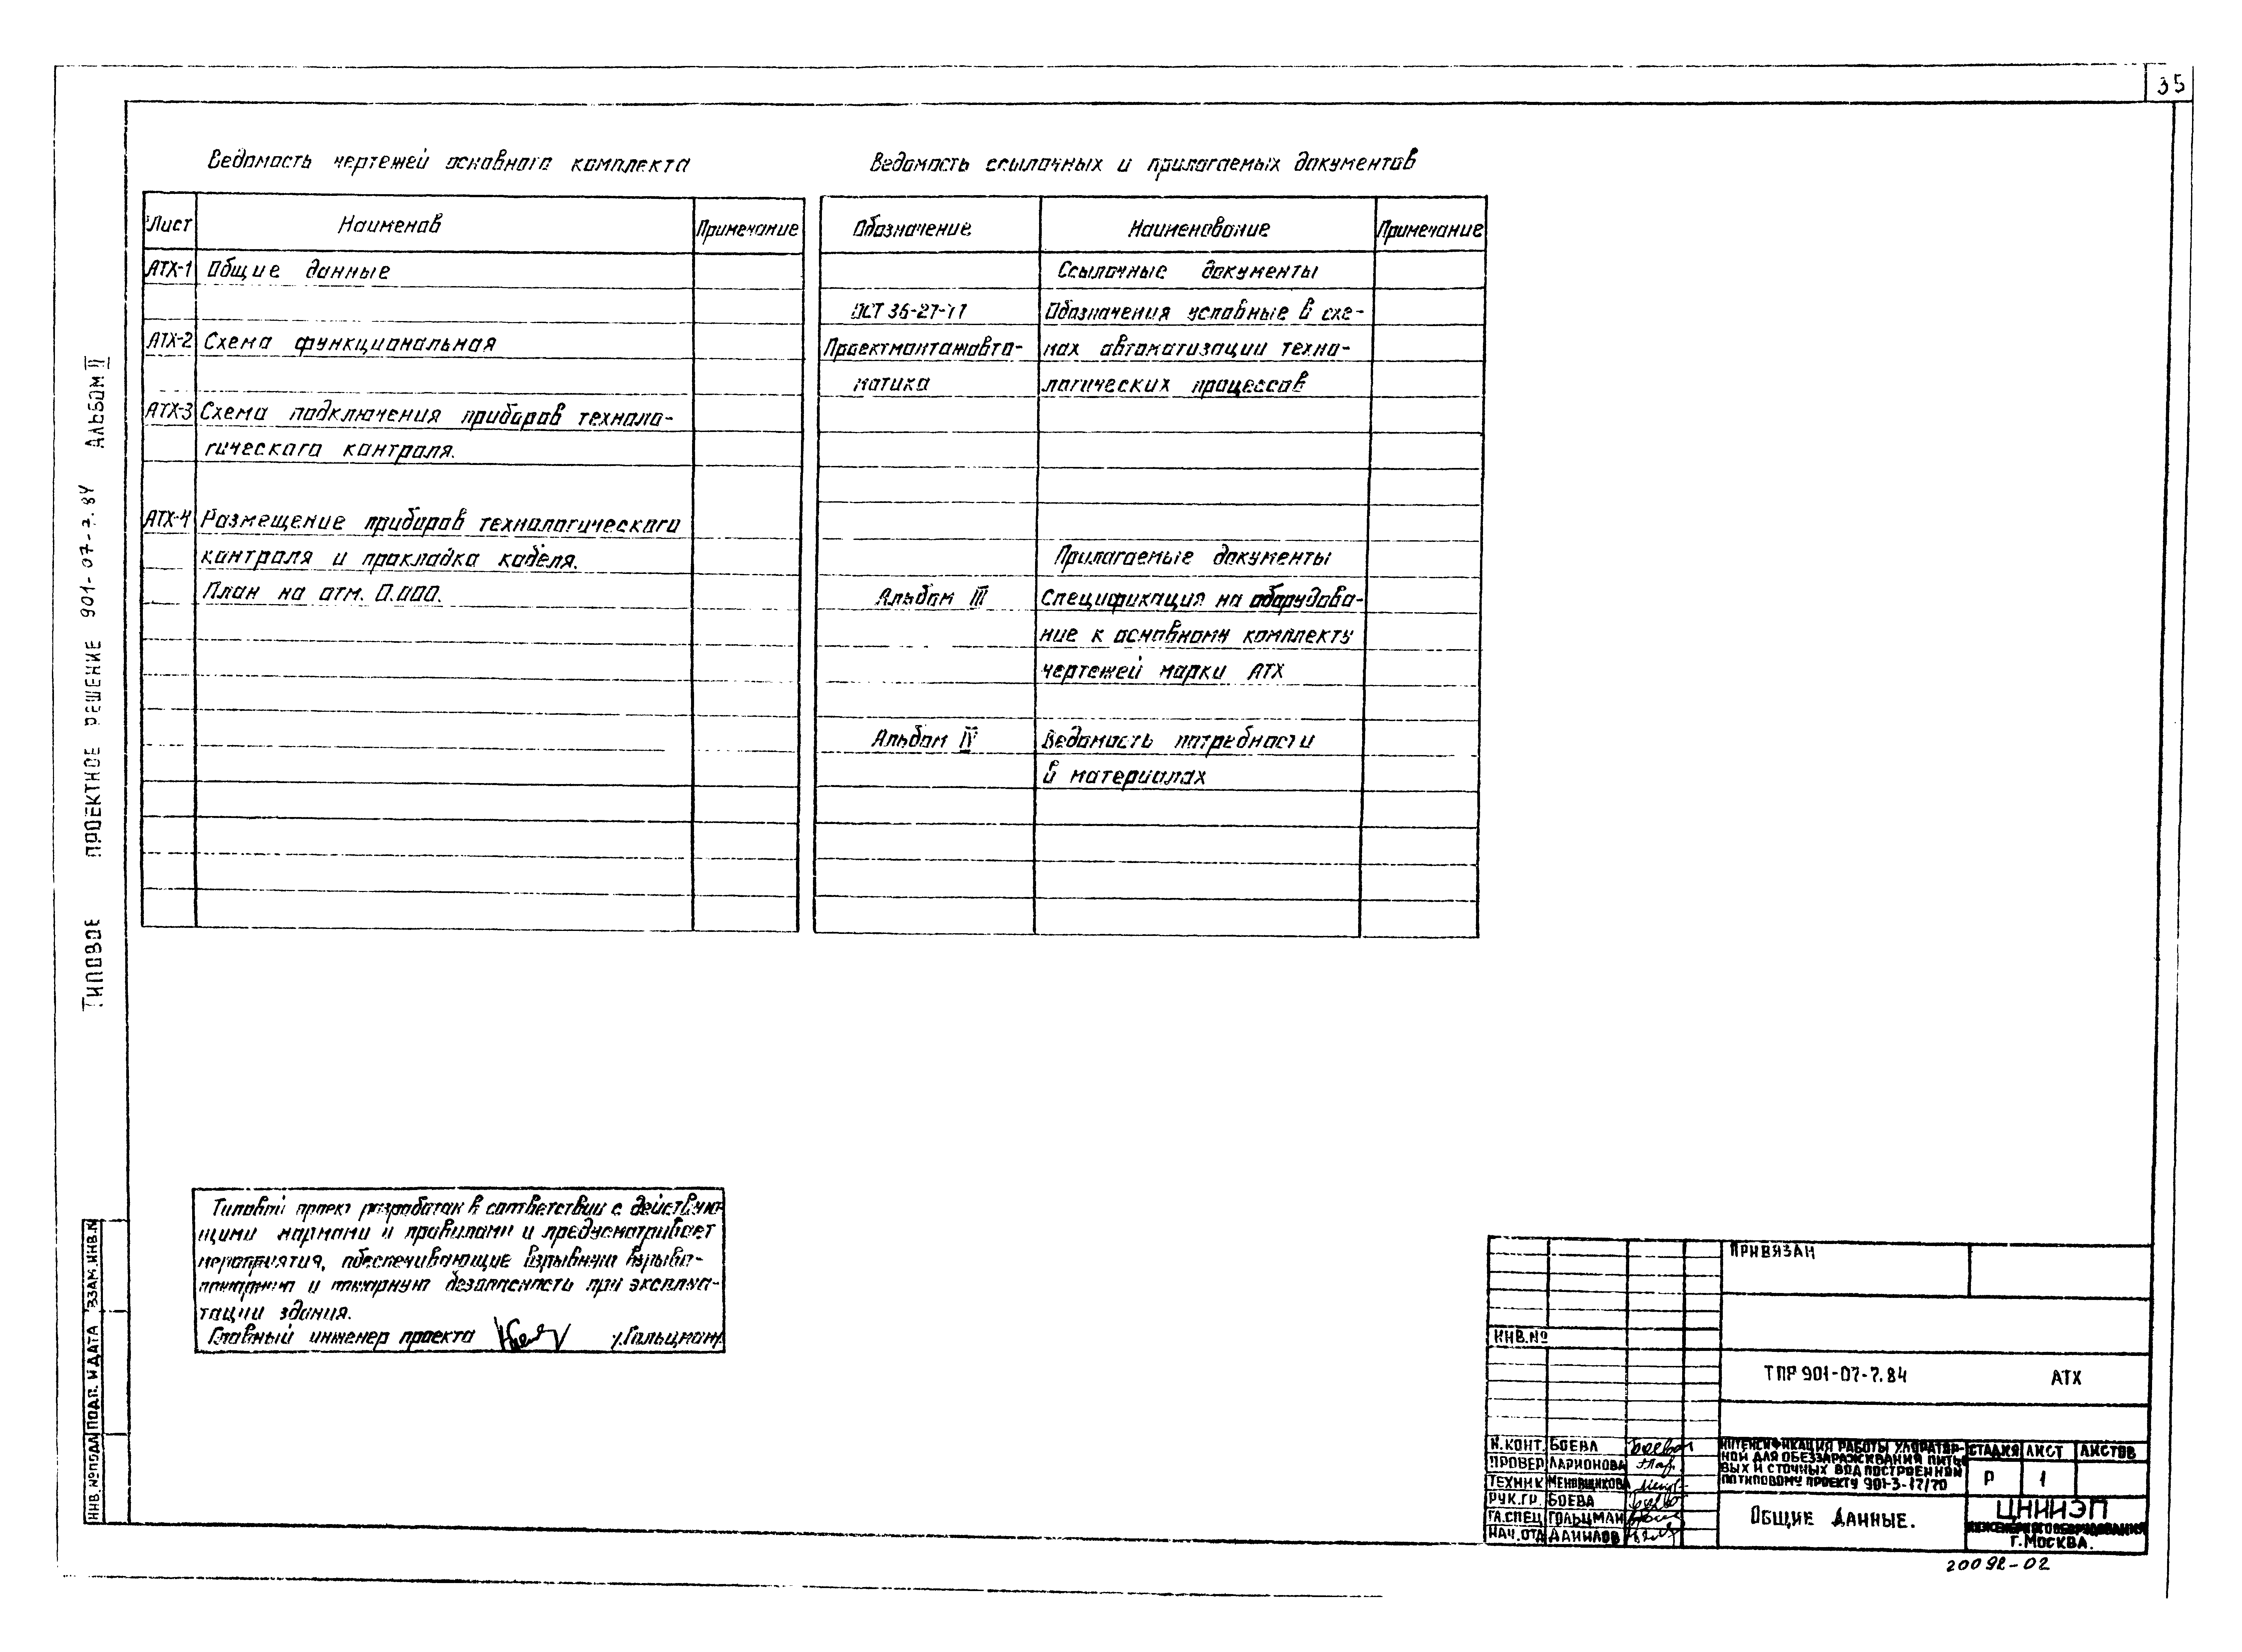 35
Ведомость чертежей основного комплекта
Лист Наименов Примечание
АТХ-1 Общие данные
АТХ-2 Схема функциональная
АТХ-3 Схема подключения приборов техноло-
гического контроля.
АТХ-4 Размещение приборов технологического
контроля и прокладка кабеля.
План на отм. 0.000.
Ведомость ссылочных и прилагаемых документов
Обозначение Наименование Примечание
Ссылочные документы
ОСТ 36-27-77 Обозначения условные в схе-
Проектмонтажавто- мах автоматизации техно-
матика логических процессов
Прилагаемые документы
Альбом III Спецификация на оборудова-
ние к основному комплекту
чертежей марки АТХ
Альбом IV Ведомость потребности
в материалах
ТИПОВОЕ ПРОЕКТНОЕ РЕШЕНИЕ 901-07-7.84 АЛЬБОМ II
Типовой проект разработан в соответствии с действую-
щими нормами и правилами и предусматривает
мероприятия, обеспечивающие взрывную взрыво-
пожарную и пожарную безопасность при эксплуа-
тации здания.
Главный инженер проекта Гольцман
ИНВ.№ПОДЛ ПОДП. И ДАТА ВЗАМ.ИНВ.№
ПРИВЯЗАН
ИНВ.№
ТПР 901-07-7.84 АТХ
Н.КОНТ. БОЕВА
ПРОВЕР ЛАРИОНОВА
ТЕХНИК МЕНОВЩИКОВА
РУК.ГР. БОЕВА
ГЛ.СПЕЦ ГОЛЬЦМАН
НАЧ.ОТД ДАНИЛОВ
ИНТЕНСИФИКАЦИЯ РАБОТЫ ХЛОРАТОР-
НОЙ ДЛЯ ОБЕЗЗАРАЖИВАНИЯ ПИТЬЕ
ВЫХ И СТОЧНЫХ ВОД ПОСТРОЕННОЙ
ПО ТИПОВОМУ ПРОЕКТУ 901-3-17/70
СТАДИЯ ЛИСТ ЛИСТОВ
Р 1
ОБЩИЕ ДАННЫЕ.
ЦНИИЭП
ИНЖЕНЕРНОГО ОБОРУДОВАНИЯ
Г.МОСКВА.
20092-02